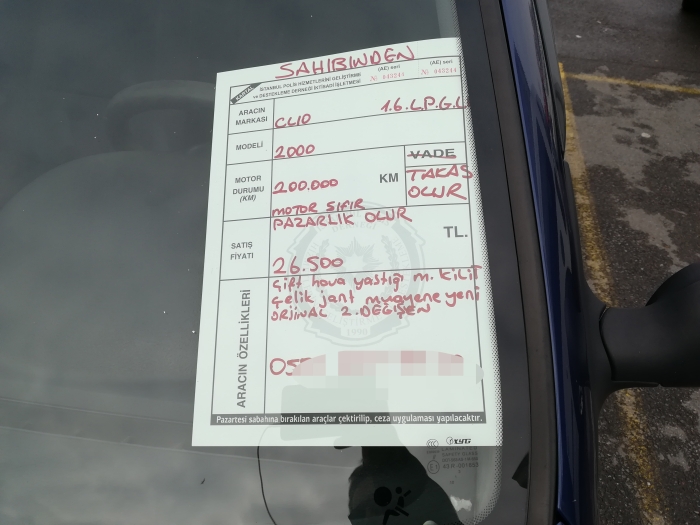 SAHIBINDEN
İSTANBUL POLİS HİZMETLERİNİ GELİŞTİRME
ve DESTEKLEME DERNEĞİ İKTİSADİ İŞLETMESİ
(AE) seri
(AE) seri
ARACIN
MARKASI
CLIO
1.6.L.P.G.L
MODELİ
2000
MOTOR
DURUMU
(KM)
200.000
KM
MOTOR SIFIR
VADE
TAKAS
OLUR
SATIŞ
FİYATI
PAZARLIK OLUR
TL.
26.500
ARACIN ÖZELLİKLERİ
Çift hava yastığı m. KiLiT
Çelik jant muayene yeni
ORJİNAL 2.DEĞİŞEN
Pazartesi sabahına bırakılan araçlar çektirilip, ceza uygulaması yapılacaktır.